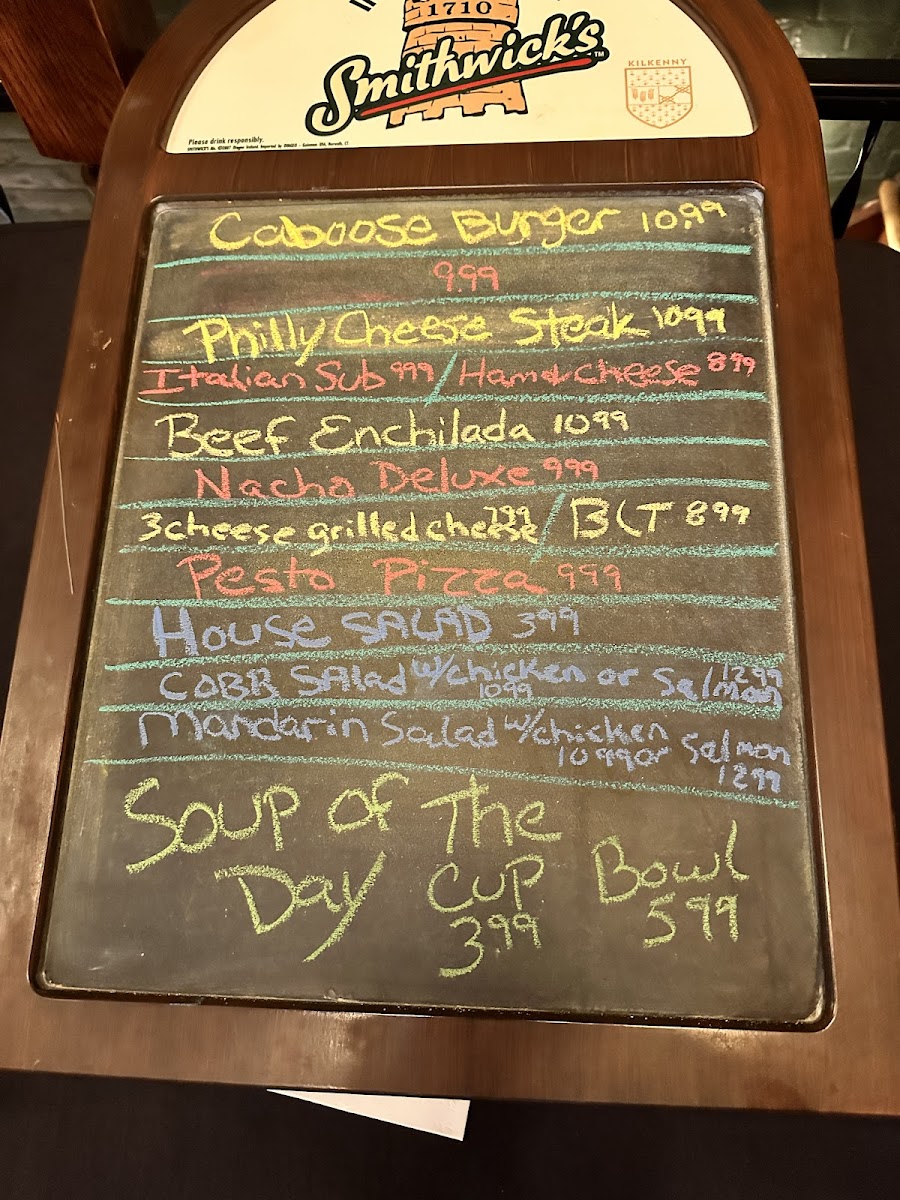 1710
Smithwick's™
KILKENNY
Please drink responsibly.
Caboose Burger 10.99
9.99
Philly Cheese Steak 1099
Italian Sub 999 / Ham & cheese 899
Beef Enchilada 1099
Nacho Deluxe 999
3 cheese grilled cheese 799 / BLT 899
Pesto Pizza 999
House SALAD 399
COBB SAlad w/chicken 1099 or Salmon 1299
Mandarin Salad w/chicken
1099 or Salmon
1299
Soup of The
Day Cup Bowl
3.99 599